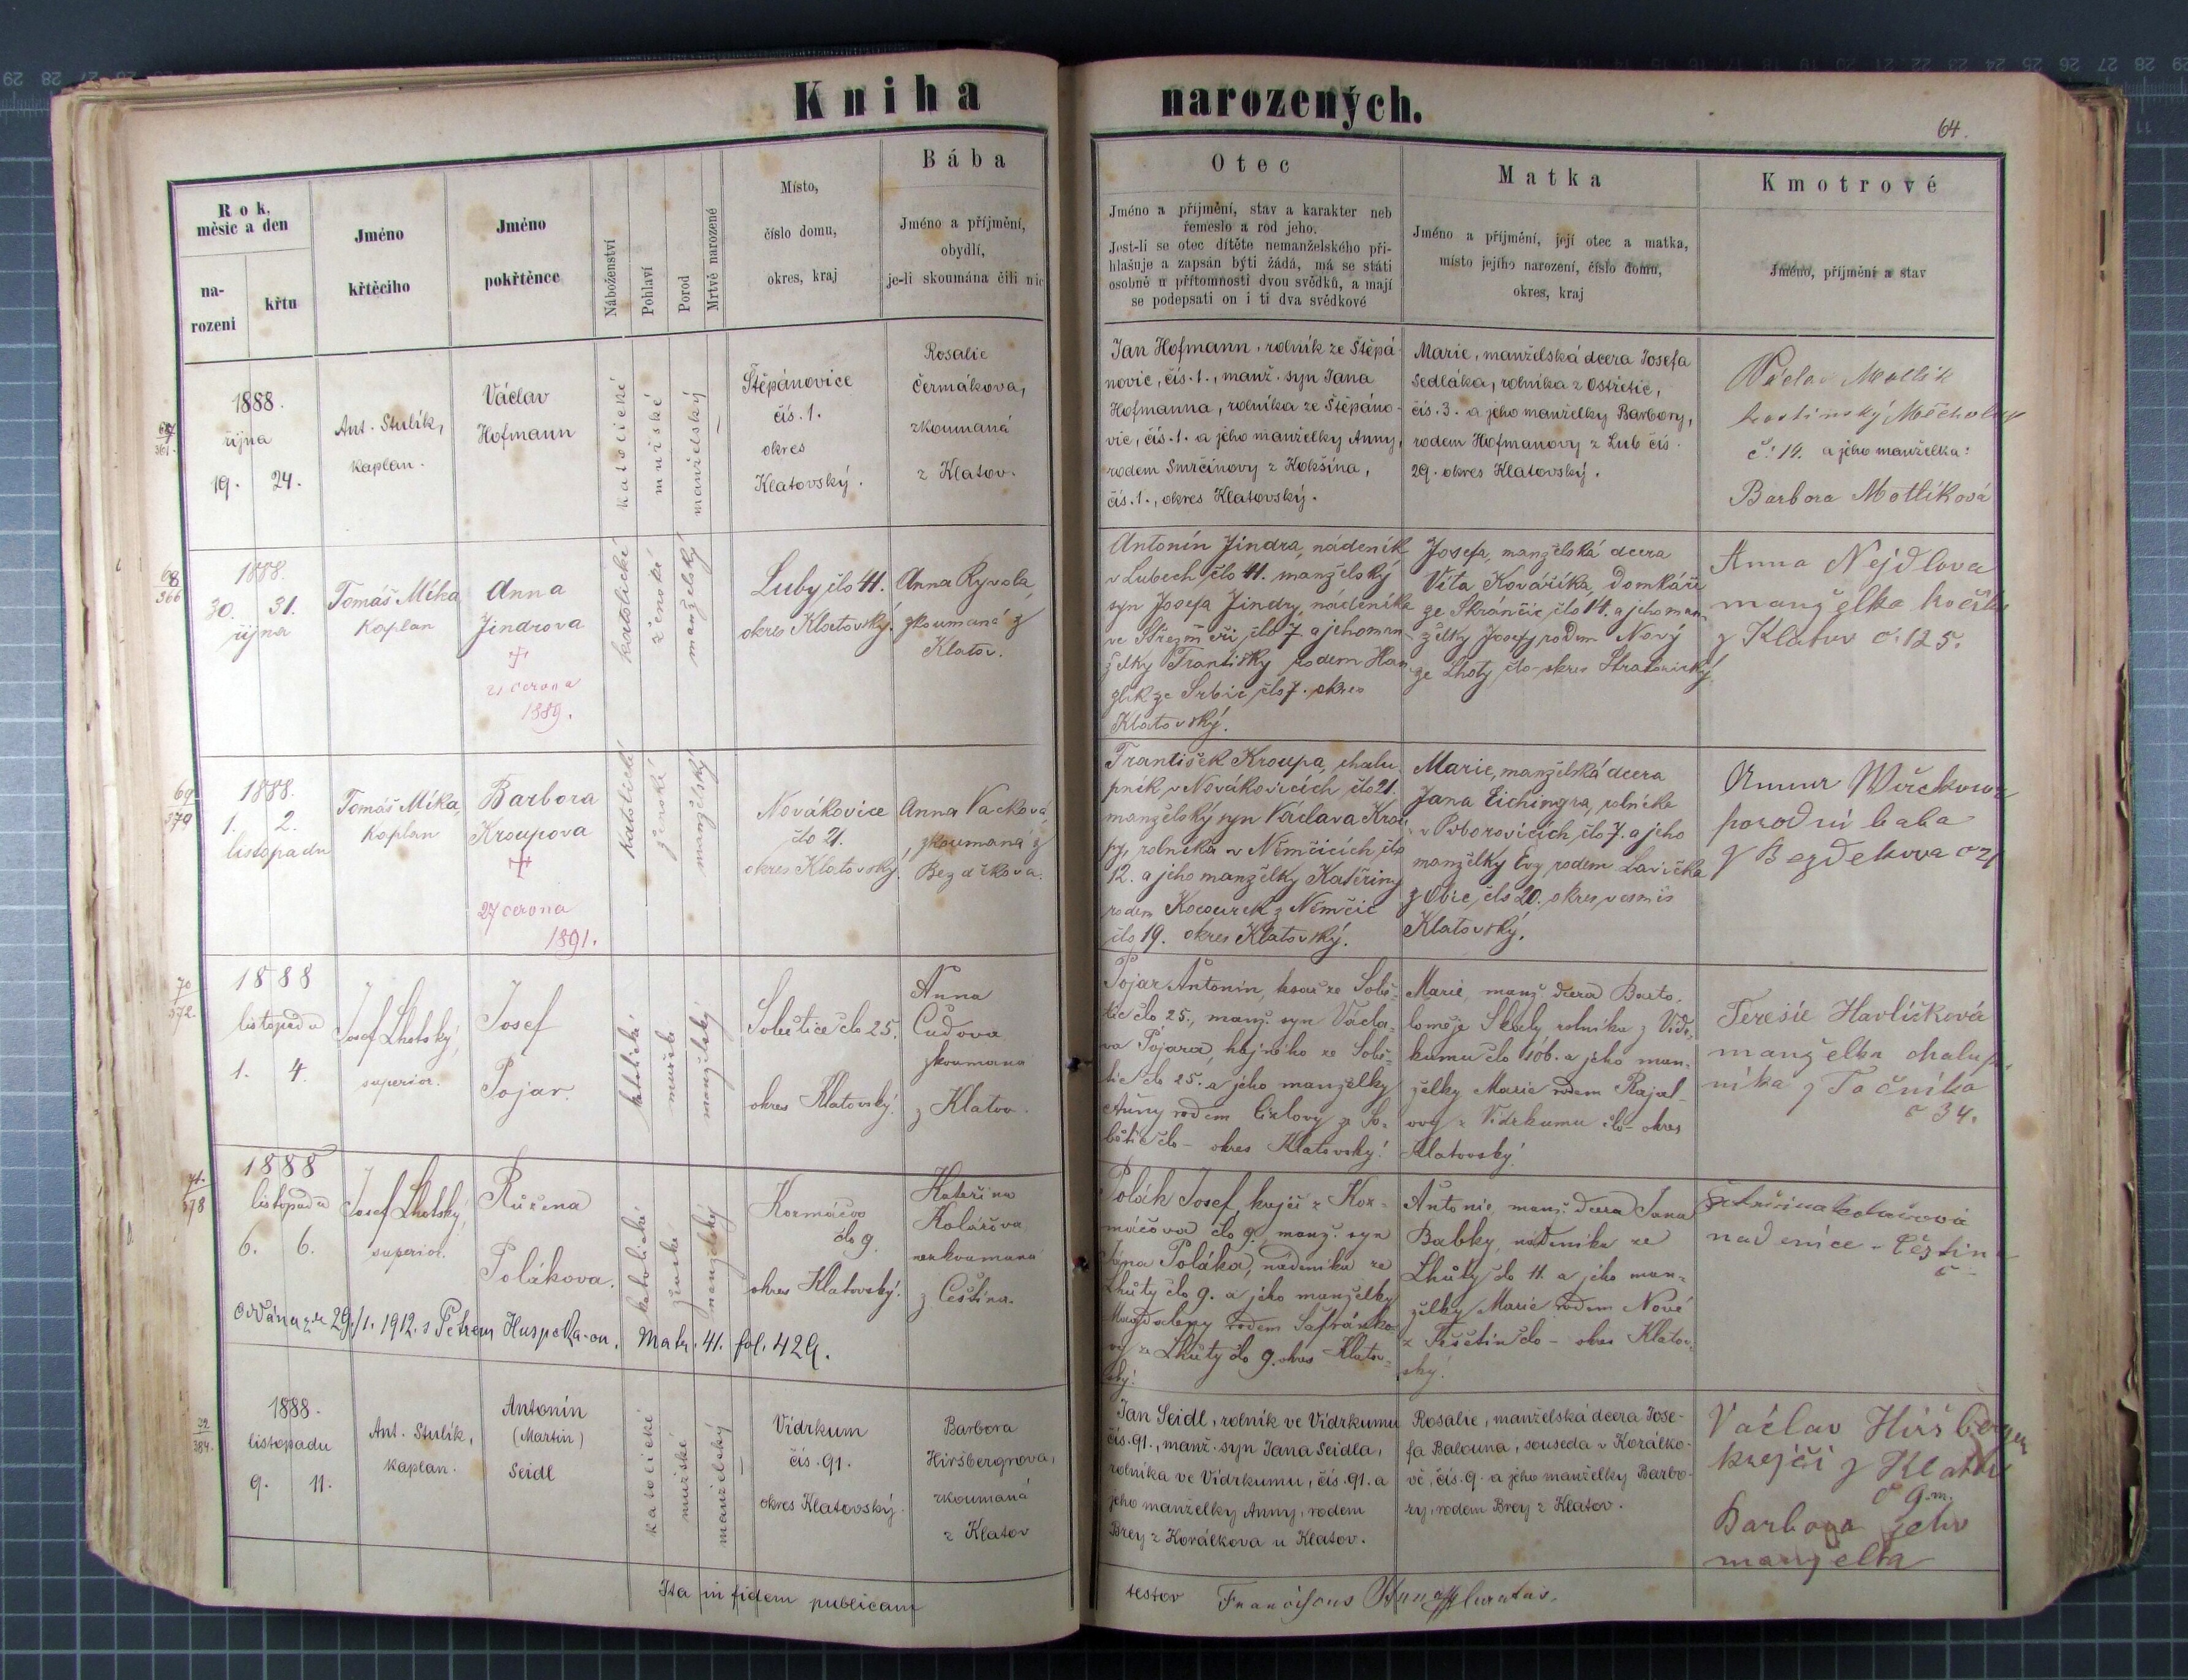 Kniha narozených.
64.
Rok, měsíc a den
narození
křtu
Jméno křtěcího
Jméno pokřtěnce
Náboženství
Pohlaví
Porod
Mrtvě narozené
Místo, číslo domu, okres, kraj
Bába
Jméno a příjmění, obydlí, je-li skoumána čili nic
Otec
Jméno a příjmění, stav a karakter neb
řemeslo a rod jeho.
Jest-li se otec dítěte nemanželského při-
hlašuje a zapsán býti žádá, má se státi
osobně u přítomnosti dvou svědků, a mají
se podepsati on i ti dva svědkové
Matka
Jméno a příjmění, její otec a matka,
místo jejího narození, číslo domu,
okres, kraj
Kmotrové
Jméno, příjmění a stav
1888.
října
19. 24.
Ant. Stulík,
kaplan.
Václav
Hofmann
katolické
mužské
manželský
Štěpánovice
čís. 1.
okres
Klatovský.
Rosalie
Čermákova,
zkoumaná
z Klatov.
Jan Hofmann, rolník ze Štěpá-
novic, čís. 1., manž. syn Jana
Hofmanna, rolníka ze Štěpáno-
vic, čís. 1. a jeho manželky Anny,
rodem Smrčinovy z Kokšína,
čís. 1., okres Klatovský.
Marie, manželská dcera Josefa
Sedláka, rolníka z Ostřetic,
čís. 3. a jeho manželky Barbory,
rodem Hofmanovy z Lub čís.
29. okres Klatovský.
Václav Motlík
hostinský Měcholup
č: 14. a jeho manželka:
Barbora Motlíková
68
366
1888.
30. 31.
října
Tomáš Míka
kaplan
Anna
Jindrova
21 června
1889.
katolické
ženské
manželský
Luby člo 41.
okres Klatovský.
Anna Ryvola,
zkoumaná z
Klatov.
Antonín Jindra, nádeník
v Lubech člo 41. manželský
syn Josefa Jindry, nádeníka
ve člo 7 a jeho man-
želky Františky rodem
ze Srbic člo 7. okres
Klatovský.
Josefa, manželská dcera
Víta Kováříka, domkáře
ze Skránčic člo 14. a jeho man-
želky Josefy rodem Nový
ze Lhoty člo - okres
Anna Nejdlova
manželka
z Klatov č. 125.
69
379
1888.
1. 2.
listopadu
Tomáš Míka,
kaplan
Barbora
Kroupova
27 června
1891.
katolické
ženské
manželský
Novákovice
člo 21.
okres Klatovský.
Anna Vacková,
zkoumaná z
Bezděkova.
František Kroupa, chalu
pník v Novákovicích člo 21.
manželský syn Václava Krou
py, rolníka v Němčicích člo
12. a jeho manželky Kateřiny
rodem Kocourek z Němčic
člo 19. okres Klatovský.
Marie, manželská dcera
Jana Eichingra, rolníka
v Poborovicích člo 7. a jeho
manželky Evy rodem Lavička
z člo 20. okres
Klatovský.
porodní baba
z Bezdekova
70
372.
1888
listopadu
1. 4.
Josef Lhotský,
superior.
Josef
Pojar.
katolické
mužské
manželský
Sobětice člo 25.
okres Klatovský.
Anna
Čudova
zkoumana
z Klatov.
Pojar Antonín, ze Sobě-
tic člo 25., manž. syn Václa-
va Pojara, hajného ze Sobě-
tic člo 25. a jeho manželky
Anny rodem Cizlovy ze So-
bětic člo - okres Klatovský.
Marie, manž. dcera Barto-
loměje Skály rolníka z Vidr-
kumu člo 106. a jeho man-
želky Marie rodem
ovy z Vidrkumu člo - okres
Klatovský.
Teresie Havlíčková
manželka chalup
níka z Točníka
č 34.
71.
378
1888
listopadu
6. 6.
Josef Lhotský,
superior.
Růžena
Polákova.
katolické
ženské
manželský
člo 9.
okres Klatovský.
Kateřina
Kolářova
nezkoumaná
z Češtína.
Polák Josef, krejčí z Kor-
člo 9., manž. syn
Jána Poláka, nádeníka ze
Lhůty člo 9. a jeho manželky
Magdaleny rodem Šafránko-
vy ze Lhůty člo 9. okres Klatov-
ský.
Antonie, manž. dcera Jana
Babky, nádeníka ze
Lhůty člo 11. a jeho man-
želky Marie rodem Nové
z člo - okres Klatov-
ský.
nadenice
Oddána dne 29./1. 1912. s Petrem Matr. 41. fol. 429.
72
384.
1888.
listopadu
9. 11.
Ant. Stulík,
kaplan.
Antonín
(Martin)
Seidl
katolické
mužské
manželský
Vídrkum
čís. 91.
okres Klatovský.
Barbora
Hiršbergrova,
zkoumaná
z Klatov
Jan Seidl, rolník ve Vídrkumu
čís. 91., manž. syn Jana Seidla,
rolníka ve Vídrkumu, čís. 91. a
jeho manželky Anny, rodem
Brey z Korálkova u Klatov.
Rosalie, manželská dcera Jose-
fa Balouna, souseda v Korálko-
vě, čís. 9. a jeho manželky Barbo-
ry, rodem Brey z Klatov.
Václav Hiršberger
krejčí z Klatov
č 9.m.
Barbora jeho
manželka
Ita in fidem publicam
testor Franciscus